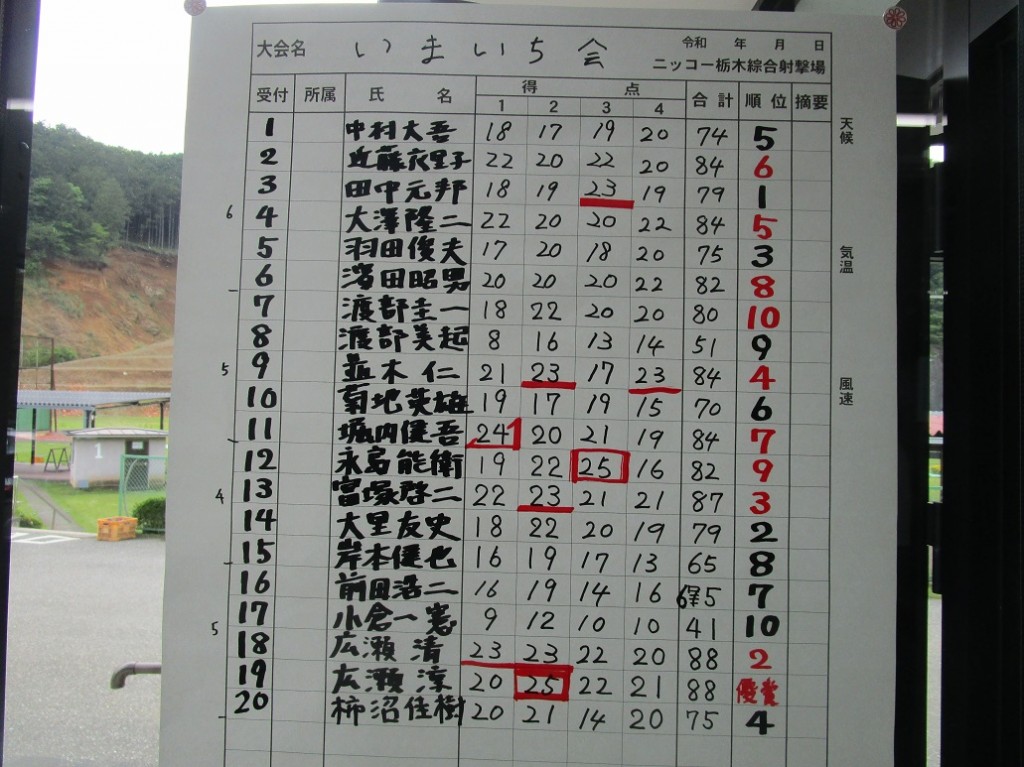 大会名 いまいち会 令和 年 月 日
ニッコー栃木綜合射撃場
受付 所属 氏 名 得 点 合計 順位 摘要
1 2 3 4
1 中村大吾 18 17 19 20 74 5
2 近藤衣里子 22 20 22 20 84 6
3 田中元邦 18 19 23 19 79 1
6
4 大澤隆二 22 20 20 22 84 5
5 羽田俊夫 17 20 18 20 75 3
6 濱田昭男 20 20 20 22 82 8
7 渡部圭一 18 22 20 20 80 10
8 渡部美起 8 16 13 14 51 9
5
9 並木仁 21 23 17 23 84 4
10 菊地英雄 19 17 19 15 70 6
11 堀内健吾 24 1 20 21 19 84 7
12 永島能衛 19 22 25 16 82 9
4
13 富塚啓二 22 23 21 21 87 3
14 大里友史 18 22 20 19 79 2
15 岸本健也 16 19 17 13 65 8
16 前田浩二 16 19 14 16 65 7
5
17 小倉一憲 9 12 10 10 41 10
18 広瀬清 23 23 22 20 88 2
19 広瀬淳 20 25 22 21 88 優賞
20 柿沼佳樹 20 21 14 20 75 4
天候
気温
風速
1